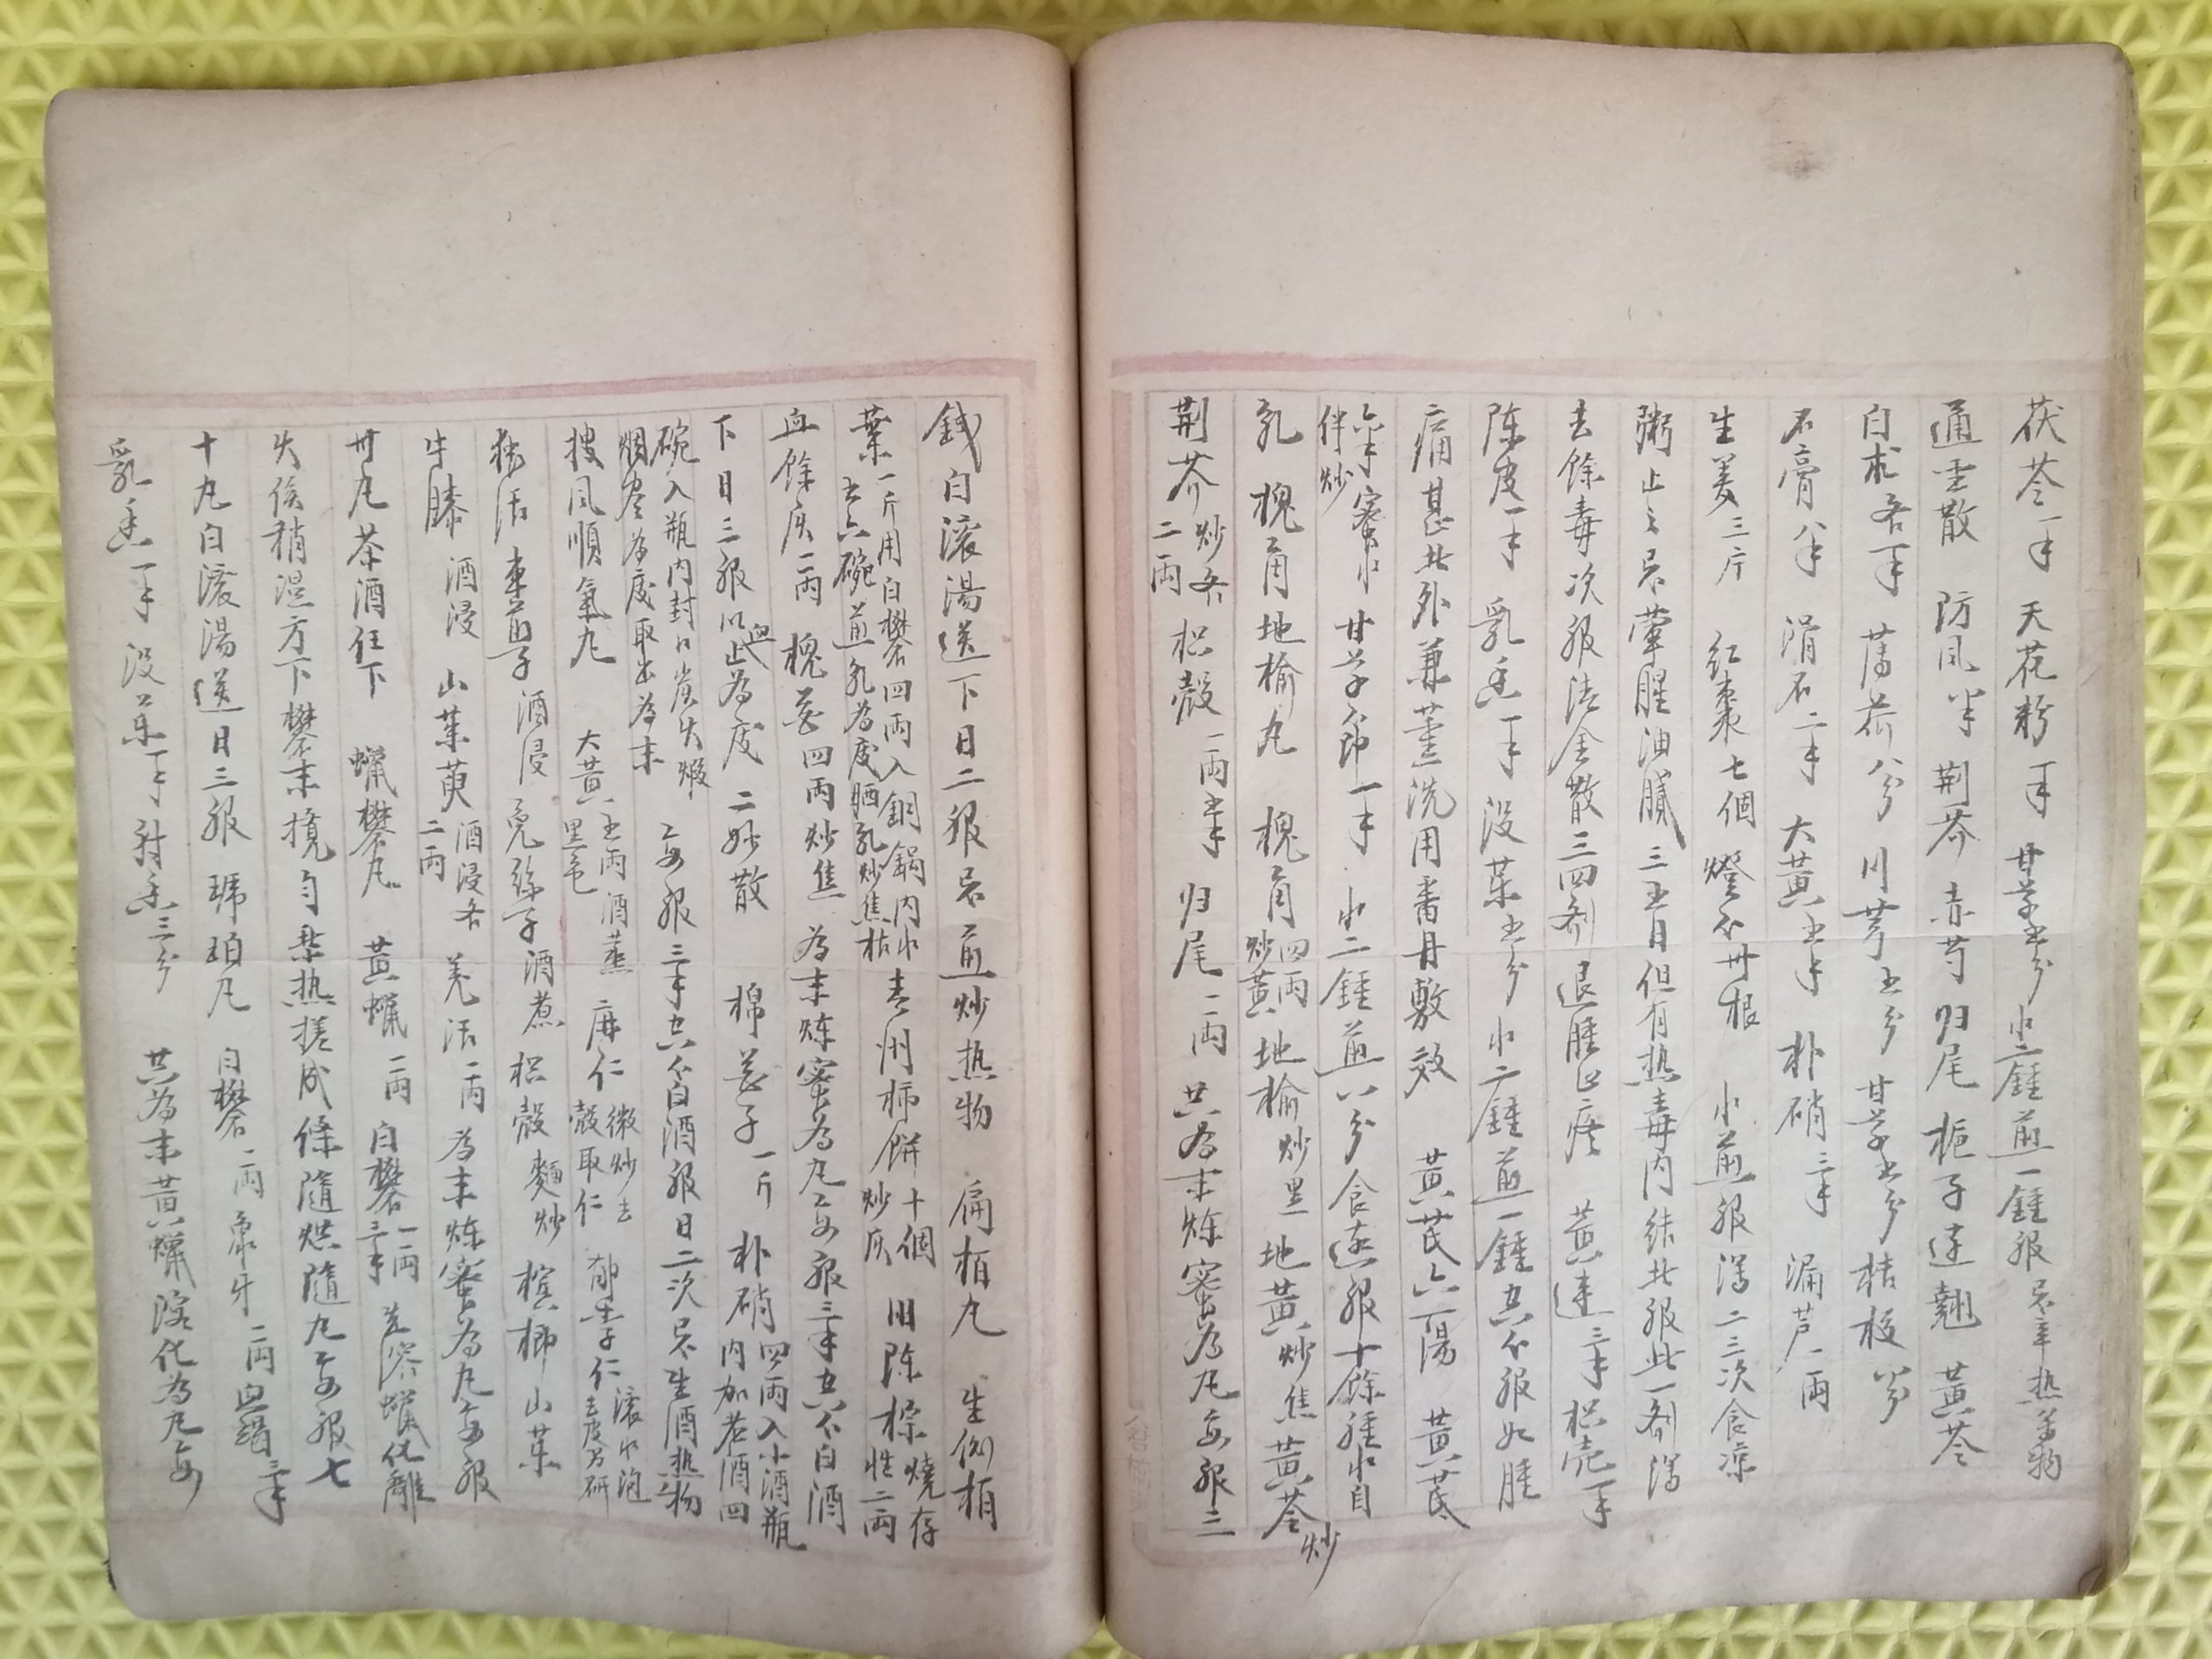 茯苓一钱 天花粉一钱 甘草五分 水二鍾煎一鍾服忌辛热等物
通圣散 防风半 荆芥 赤芍 归尾 栀子 連翹 黄芩
白朮各一钱 薄荷八分 川芎五分 甘草五分 桔梗八分
石膏八钱 滑石二钱 大黄五钱 朴硝三钱 漏芦一兩
生姜三片 红棗七個 燈心廿根 水煎服瀉二三次食凉
粥止之忌葷腥油膩三五日但有热毒内結此服此一剂瀉
去餘毒次服法金散三四剂退腫止疼 黄連三钱枳壳一钱
陈皮一钱 乳香一钱 没药五分 水二鍾煎一鍾空心服如腫
痛甚此外兼薰洗用番丹敷效 黄芪六一湯 黄芪
六钱蜜水伴炒 甘草節一钱 水二鍾煎八分食遠服十餘鍾水自
乳 槐角地榆丸 槐角四兩炒黄地榆炒黑地黄炒焦黄芩炒
荆芥炒各二兩 枳殼一兩半 归尾一兩 共为末炼蜜为丸每服三
錢白滚湯送下日二服忌煎炒热物 扁柏丸 生侧柏
葉一斤用白礬四兩入銅鍋内水五六碗煎乳为度晒乳炒焦枯 青州柿餅十個炒灰 旧陈棕燒存性二兩
血餘灰一兩 槐花四兩炒焦 为末炼蜜为丸每服三钱空心白酒
下日三服以血止为度 二妙散 棉花子一斤 朴硝四兩入小酒瓶内加老酒四
碗入瓶内封口炭火煅烟尽为度取出为末 每服三钱空心白酒服日二次忌生酒热物
搜风順氣丸 大黄五兩酒蒸黑色 麻仁微炒去殼取仁 郁李仁滚水泡去皮另研
独活 車前子酒浸 兎絲子酒煮 枳殼麵炒 檳榔 山药
牛膝酒浸 山茱萸酒浸各二兩 羌活一兩 为末炼蜜为丸每服
廿丸茶酒任下 蠟礬丸 黄蠟一兩 白礬一兩三钱 先溶蠟化離
火候稍温方下礬末攪匀乘热搓成條隨烘隨丸每服七
十丸白滚湯送日三服 琥珀丸 白礬一兩 象牙一兩血竭三钱
乳香一钱 没药一钱 射香三分 共为末黄蠟溶化为丸每